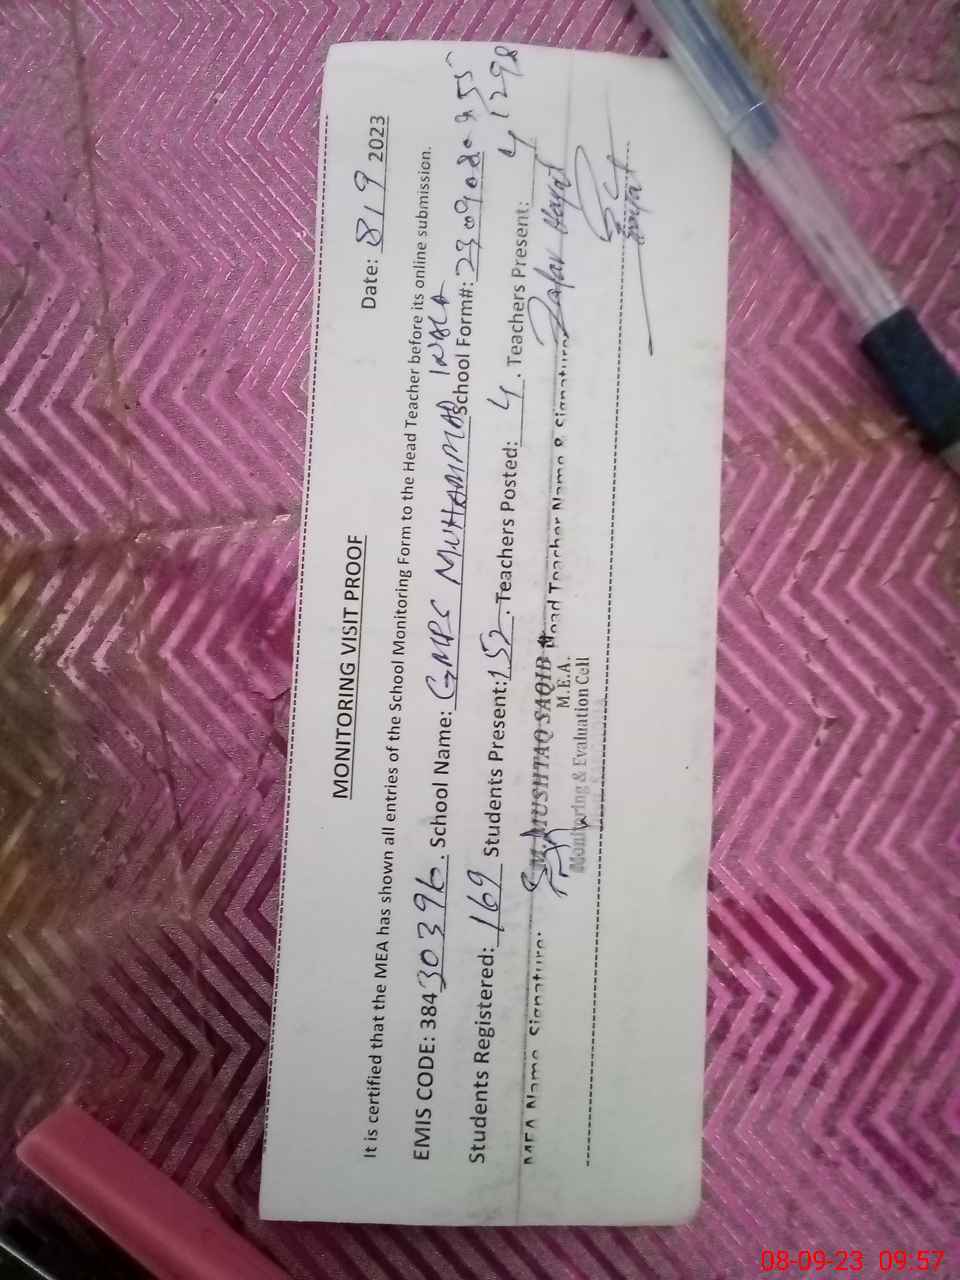 MONITORING VISIT PROOF
Date: 8/9 2023
It is certified that the MEA has shown all entries of the School Monitoring Form to the Head Teacher before its online submission.
EMIS CODE: 38430396. School Name: GMPS MUHAMMAD School Form#:
Students Registered: 169 Students Present: 152. Teachers Posted: 4. Teachers Present: 4
MEA Name, Signature: M. MUSHTAQ SAQIB Head Teacher Name & Signature: Zafar Hayat
M.E.A.
Monitoring & Evaluation Cell
08-09-23 09:57